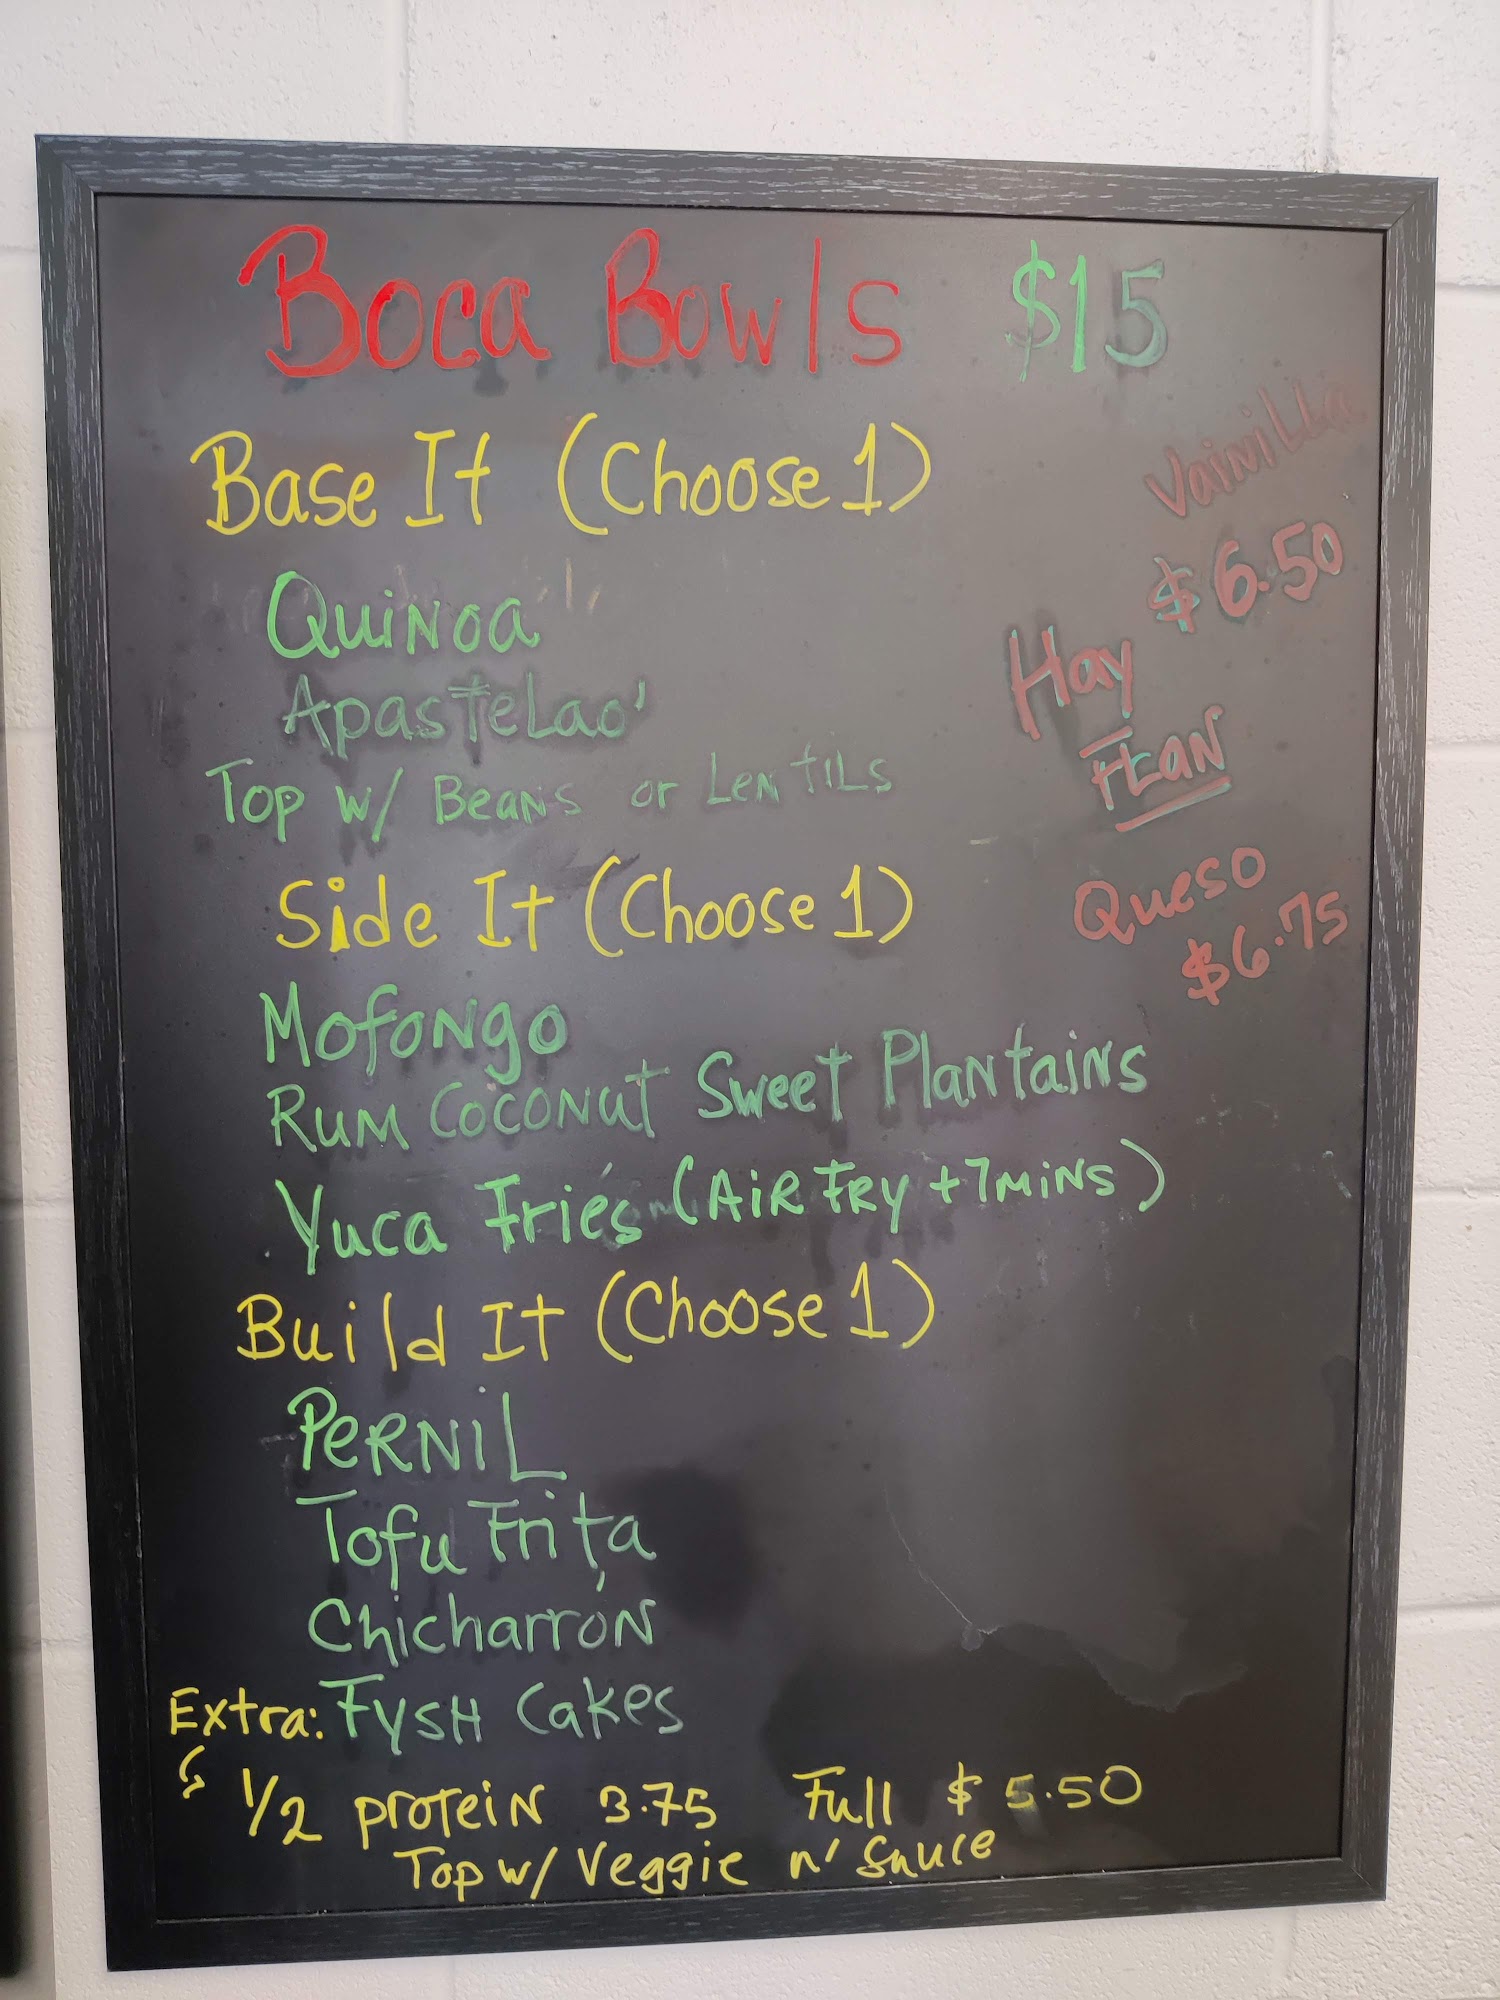 Boca Bowls $15
Base It (Choose 1)
Quinoa
Apastelao'
Top w/ Beans or Lentils
Side It (Choose 1)
Mofongo
Rum Coconut Sweet Plantains
Yuca Fries (Air Fry +7 mins)
Build It (Choose 1)
Pernil
Tofu Frita
Chicharrón
Extra: Fysh Cakes
1/2 protein 3.75 Full $5.50
Top w/ Veggie n' Sauce
Vainilla
$6.50
Hay
Flan
Queso
$6.75